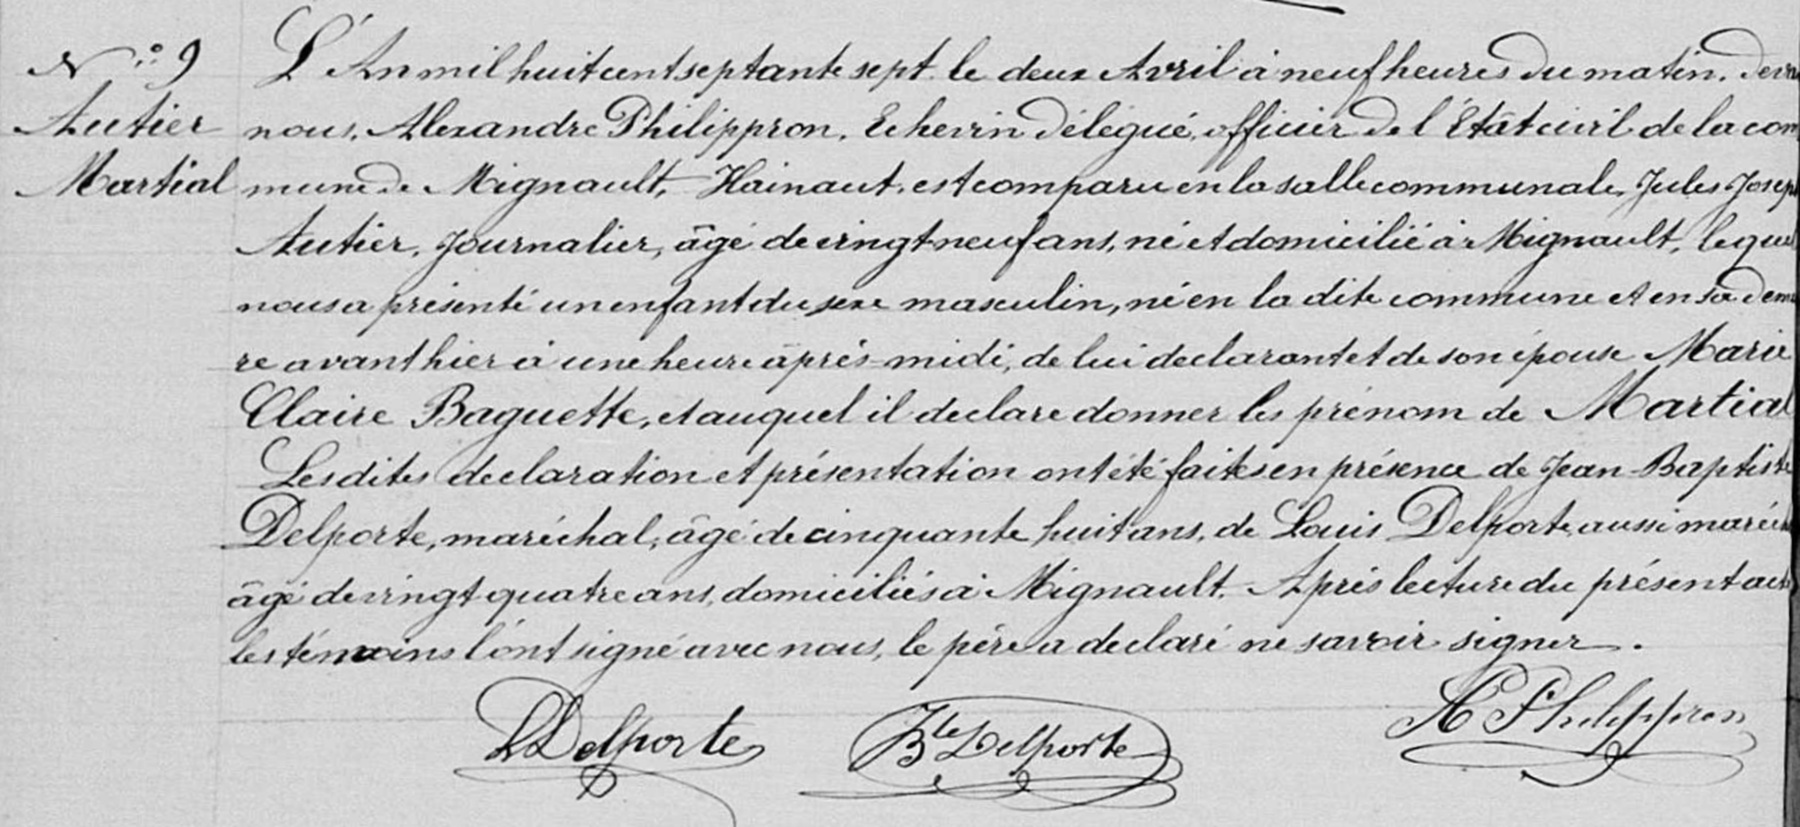 N.° 9
Autier
Martial
L'An mil huit cent septante sept le deux Avril à neuf heures du matin. Devn
nous, Alexandre Philippron, Echevin délégué, officier de l'État civil de la com
mune de Mignault, Hainaut, est comparu en la salle communale, Jules Josep
Autier, Journalier, âgé de vingt-neuf ans, né et domicilié à Mignault, lequel
nous a présenté un enfant du sexe masculin, né en la dite commune et en sa dem
re avant hier à une heure après-midi, de lui declarant et de son épouse Marie
Claire Baguette, et auquel il declare donner les prénom de Martial
Les dites declaration et présentation ont été faites en présence de Jean-Baptiste
Delporte, maréchal, âgé de cinquante huit ans, de Louis Delporte, aussi maréch
âgé de vingt quatre ans, domiciliés à Mignault. Après lecture du présent acte
les témoins l'ont signé avec nous, le père a declaré ne savoir signer.
L Delporte Jbte Delporte A Philippron